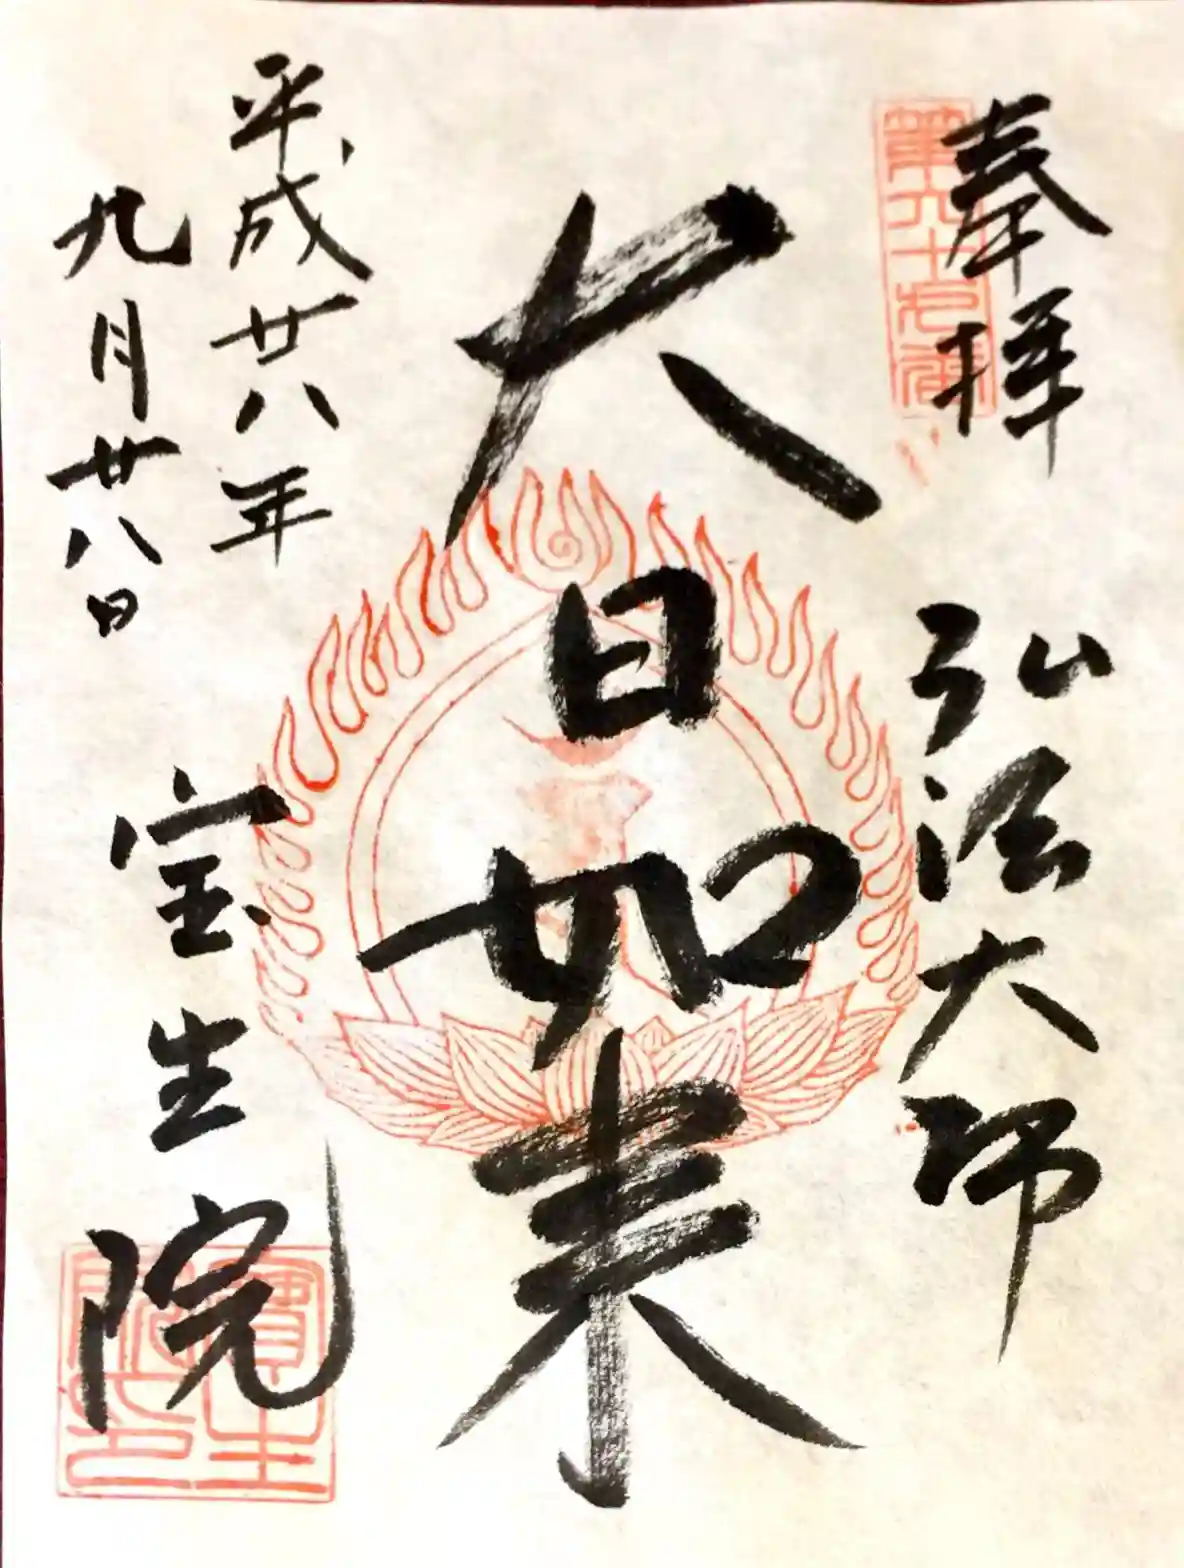 奉拝
弘法大師
大日如来
平成廿八年
九月廿八日
宝生院
寶生院印